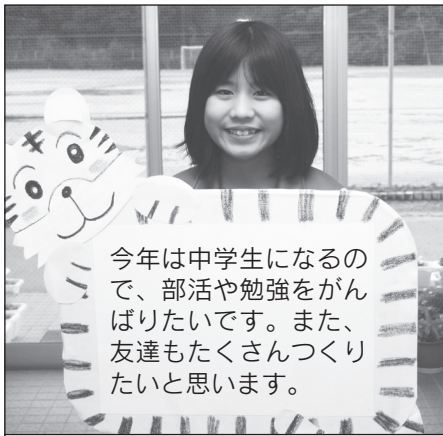 今年は中学生になるの
で、部活や勉強をがん
ばりたいです。また、
友達もたくさんつくり
たいと思います。